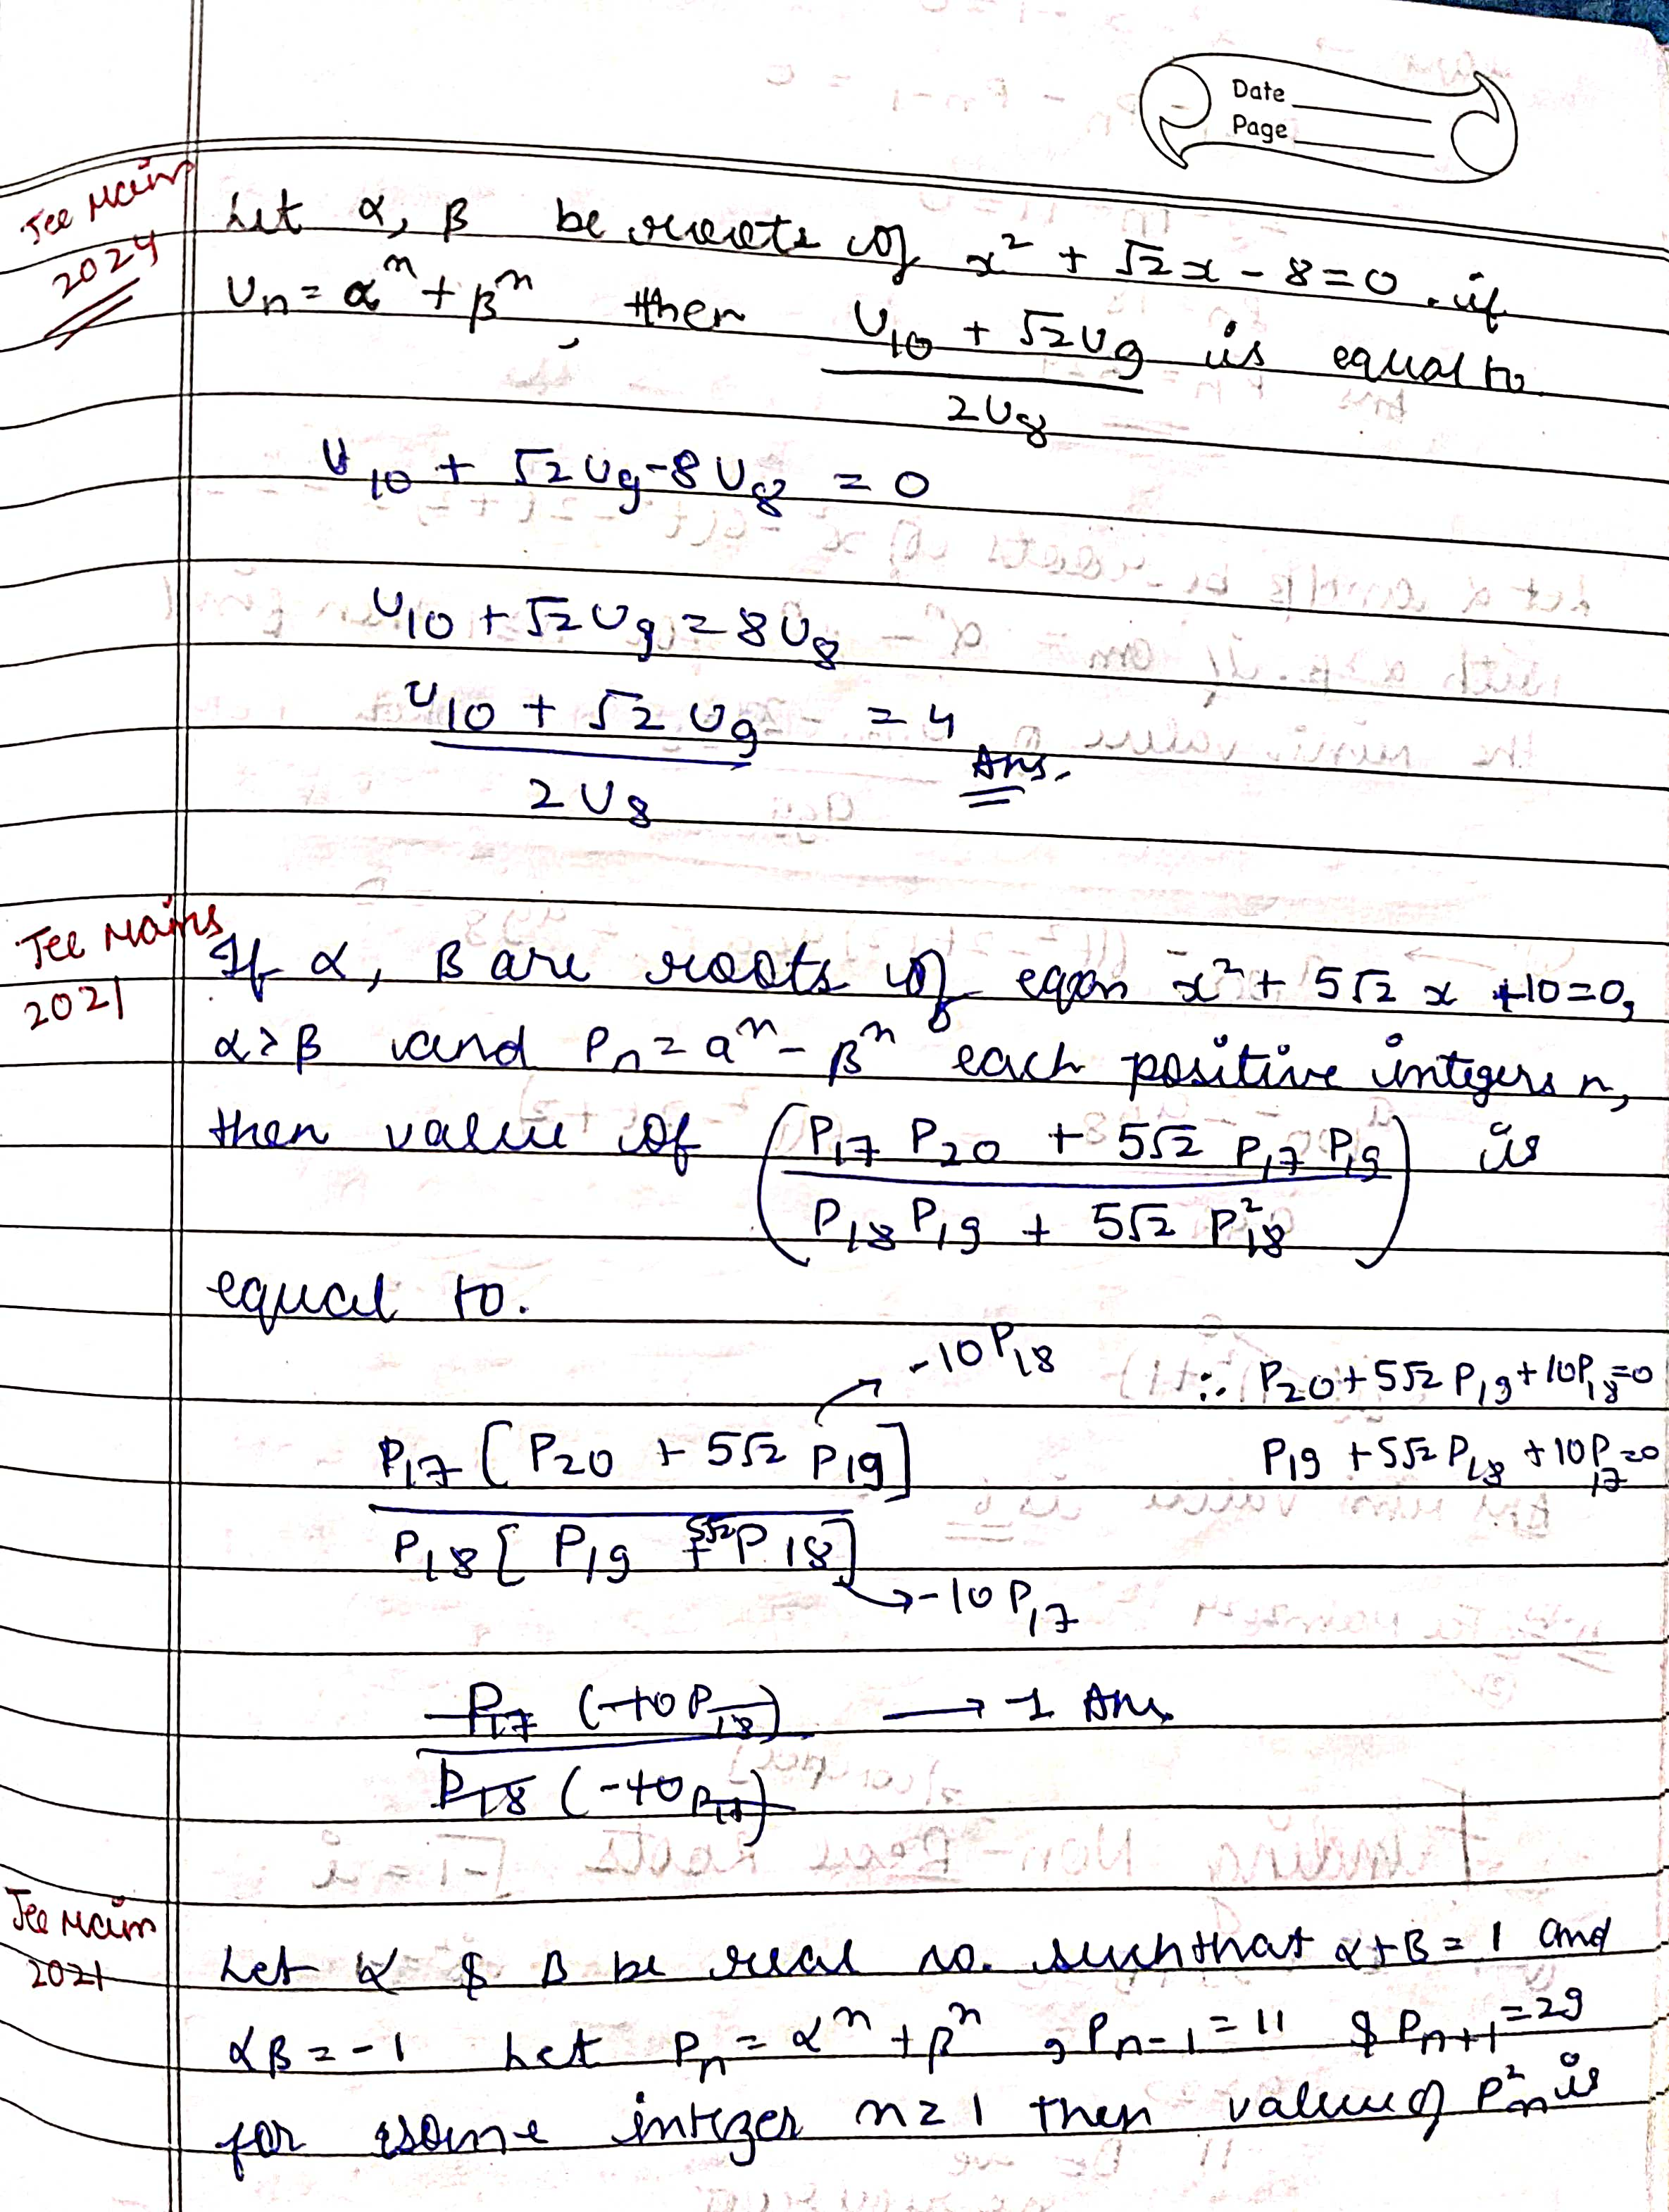 Date
Page
Jee Main
2024
Let α, β be roots of x² + √2x - 8 = 0. if
Un = αⁿ + βⁿ, then (U10 + √2U9)/(2U8) is equal to
U10 + √2U9 - 8U8 = 0
U10 + √2U9 = 8U8
(U10 + √2U9)/(2U8) = 4 Ans.
Jee Mains
2021
If α, β are roots of eqan x² + 5√2 x + 10 = 0,
α > β and Pn = aⁿ - βⁿ each positive integers n,
then value of ((P17 P20 + 5√2 P17 P19)/(P18 P19 + 5√2 P²18)) is
equal to.
-10P18
∴ P20 + 5√2 P19 + 10P18 = 0
P19 + 5√2 P18 + 10P17 = 0
P17 [P20 + 5√2 P19]
P18 [P19 + 5√2 P18]
→ -10 P17
P17 (-10 P18) → 1 Ans
P18 (-10 P17)
Jee Main
2021
Let α & β be real no. such that α + β = 1 and
αβ = -1 Let Pn = αⁿ + βⁿ, Pn-1 = 11 & Pn+1 = 29
for some integer n ≥ 1 then value of P²n is